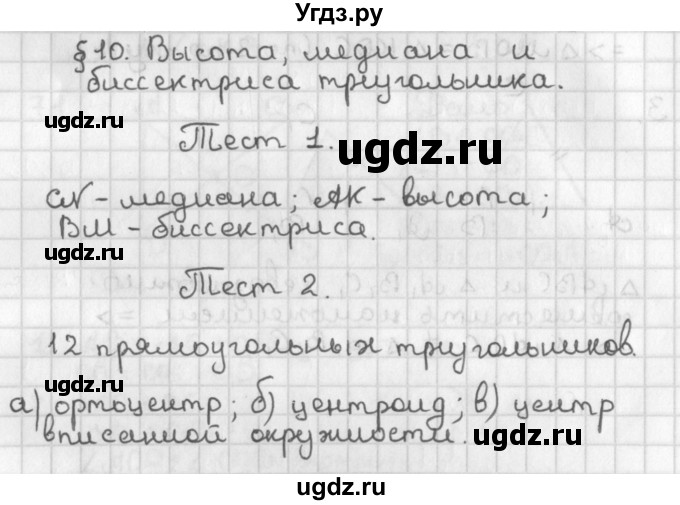 Угдз.ру
§10. Высота, медиана и
биссектриса треугольника.
ugdz.ru
Тест 1.
ugdz.ru
CN - медиана; AK - высота;
BM - биссектриса.
ugdz.ru
ugdz.ru
Тест 2.
12 прямоугольных треугольников.
ugdz.ru
а) ортоцентр; б) центроид; в) центр
вписанной окружности.
ugdz.ru
ugdz.ru